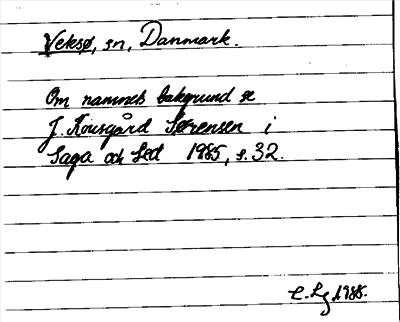 Veksø, sn, Danmark.
Om namnets bakgrund se
J. Kousgård Sørensen i
Saga och Sed 1985, s. 32.
L. Lg 1988.